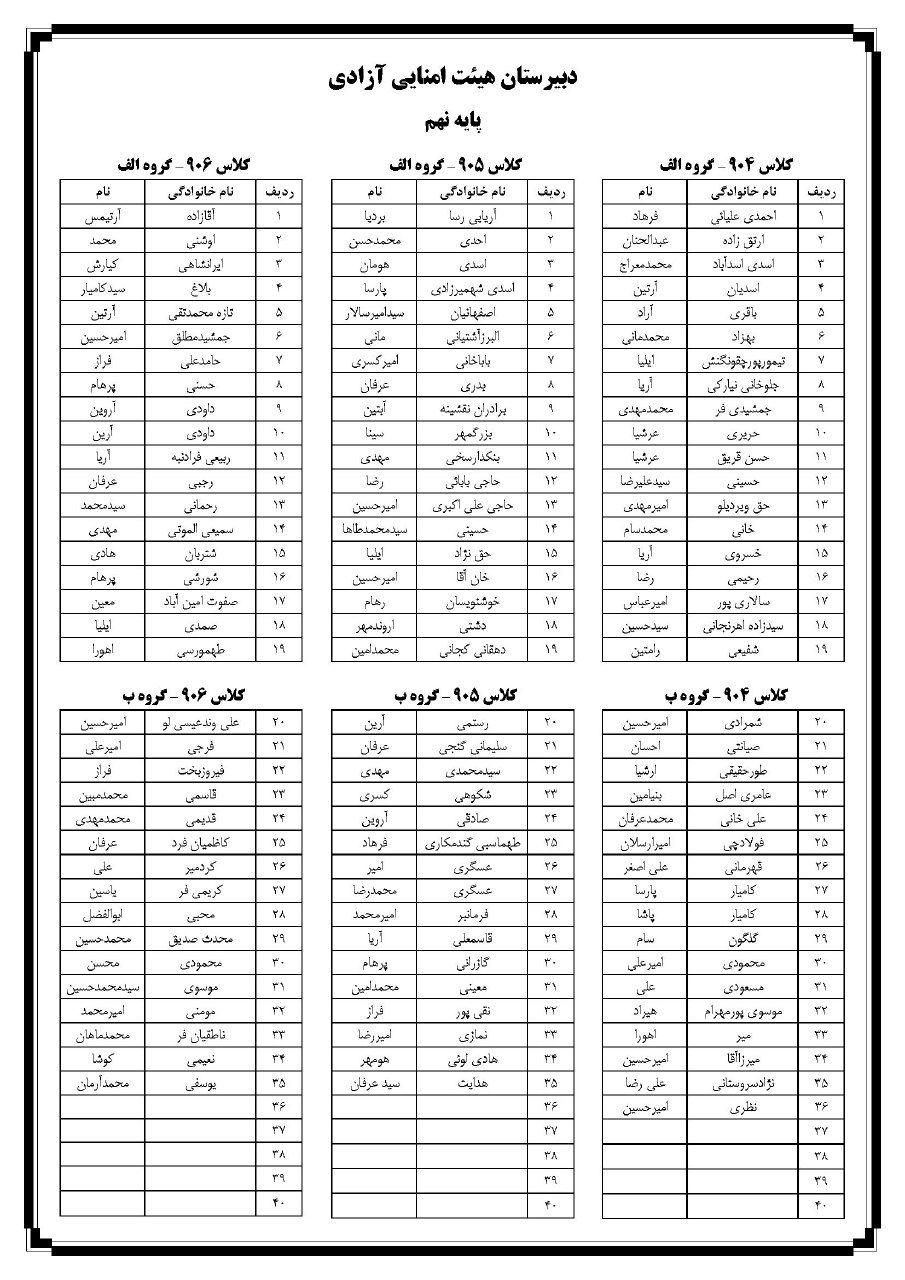 دبیرستان هیئت امنایی آزادی
پایه نهم
کلاس ۹۰۴ - گروه الف
ردیف نام خانوادگی نام
۱ احمدی علیائی فرهاد
۲ ارتق زاده عبدالحنان
۳ اسدی اسدآباد محمدمعراج
۴ اسدیان آرتین
۵ باقری آراد
۶ بهزاد محمدمانی
۷ تیمورپورچقونگنش ایلیا
۸ جلوخانی نیارکی آریا
۹ جمشیدی فر محمدمهدی
۱۰ حریری عرشیا
۱۱ حسن قریق عرشیا
۱۲ حسینی سیدعلیرضا
۱۳ حق ویردیلو امیرمهدی
۱۴ خانی محمدسام
۱۵ خسروی آریا
۱۶ رحیمی رضا
۱۷ سالاری پور امیرعباس
۱۸ سیدزاده اهرنجانی سیدحسین
۱۹ شفیعی رامتین
کلاس ۹۰۵ - گروه الف
ردیف نام خانوادگی نام
۱ آریایی رسا بردیا
۲ احدی محمدحسن
۳ اسدی هومان
۴ اسدی شهمیرزادی پارسا
۵ اصفهانیان سیدامیرسالار
۶ البرزآشتیانی مانی
۷ باباخانی امیرکسری
۸ بدری عرفان
۹ برادران نقشینه آبتین
۱۰ بزرگمهر سینا
۱۱ بنکدارسخی مهدی
۱۲ حاجی بابائی رضا
۱۳ حاجی علی اکبری امیرحسین
۱۴ حسینی سیدمحمدطاها
۱۵ حق نژاد ایلیا
۱۶ خان آقا امیرحسین
۱۷ خوشنویسان رهام
۱۸ دشتی اروندمهر
۱۹ دهقانی کجانی محمدامین
کلاس ۹۰۶ - گروه الف
ردیف نام خانوادگی نام
۱ آقازاده آرتیمس
۲ اوشنی محمد
۳ ایرانشاهی کیارش
۴ بلاغ سیدکامیار
۵ تازه محمدتقی آرتین
۶ جمشیدمطلق امیرحسین
۷ حامدعلی فراز
۸ حسنی پرهام
۹ داودی آروین
۱۰ داودی آرین
۱۱ ربیعی فرادنبه آریا
۱۲ رجبی عرفان
۱۳ رحمانی سیدمحمد
۱۴ سمیعی الموتی مهدی
۱۵ شتربان هادی
۱۶ شورشی پرهام
۱۷ صفوت امین آباد معین
۱۸ صمدی ایلیا
۱۹ طهمورسی اهورا
کلاس ۹۰۴ - گروه ب
۲۰ شمرادی امیرحسین
۲۱ صیانتی احسان
۲۲ طورحقیقی ارشیا
۲۳ عامری اصل بنیامین
۲۴ علی خانی محمدعرفان
۲۵ فولادچی امیرارسلان
۲۶ قهرمانی علی اصغر
۲۷ کامیار پارسا
۲۸ کامیار پاشا
۲۹ گلگون سام
۳۰ محمودی امیرعلی
۳۱ مسعودی علی
۳۲ موسوی پورمهرام هیراد
۳۳ میر اهورا
۳۴ میرزاآقا امیرحسین
۳۵ نژادسروستانی علی رضا
۳۶ نظری امیرحسین
۳۷
۳۸
۳۹
۴۰
کلاس ۹۰۵ - گروه ب
۲۰ رستمی آرین
۲۱ سلیمانی گنجی عرفان
۲۲ سیدمحمدی مهدی
۲۳ شکوهی کسری
۲۴ صادقی آروین
۲۵ طهماسبی گندمکاری فرهاد
۲۶ عسگری امیر
۲۷ عسگری محمدرضا
۲۸ فرمانبر امیرمحمد
۲۹ قاسمعلی آریا
۳۰ گازرانی پرهام
۳۱ معینی محمدامین
۳۲ نقی پور فراز
۳۳ نمازی امیررضا
۳۴ هادی لوئی هومهر
۳۵ هدایت سید عرفان
۳۶
۳۷
۳۸
۳۹
۴۰
کلاس ۹۰۶ - گروه ب
۲۰ علی وندعیسی لو امیرحسین
۲۱ فرجی امیرعلی
۲۲ فیروزبخت فراز
۲۳ قاسمی محمدمبین
۲۴ قدیمی محمدمهدی
۲۵ کاظمیان فرد عرفان
۲۶ کردمیر علی
۲۷ کریمی فر یاسین
۲۸ محبی ابوالفضل
۲۹ محدث صدیق محمدحسین
۳۰ محمودی محسن
۳۱ موسوی سیدمحمدحسین
۳۲ مومنی امیرمحمد
۳۳ ناطقیان فر محمدماهان
۳۴ نعیمی کوشا
۳۵ یوسفی محمدآرمان
۳۶
۳۷
۳۸
۳۹
۴۰